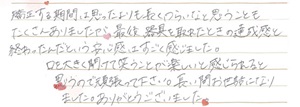 矯正する期間は思ったよりも長くつらいなと思うことも
たくさんありましたが、最後、器具を取れたときの達成感と
終わったんだという安心感はすごく感じました。
口を大きく開けて笑うことが楽しいと感じられると
思うので頑張って下さい。長い間お世話になり
ました。ありがとうございました。